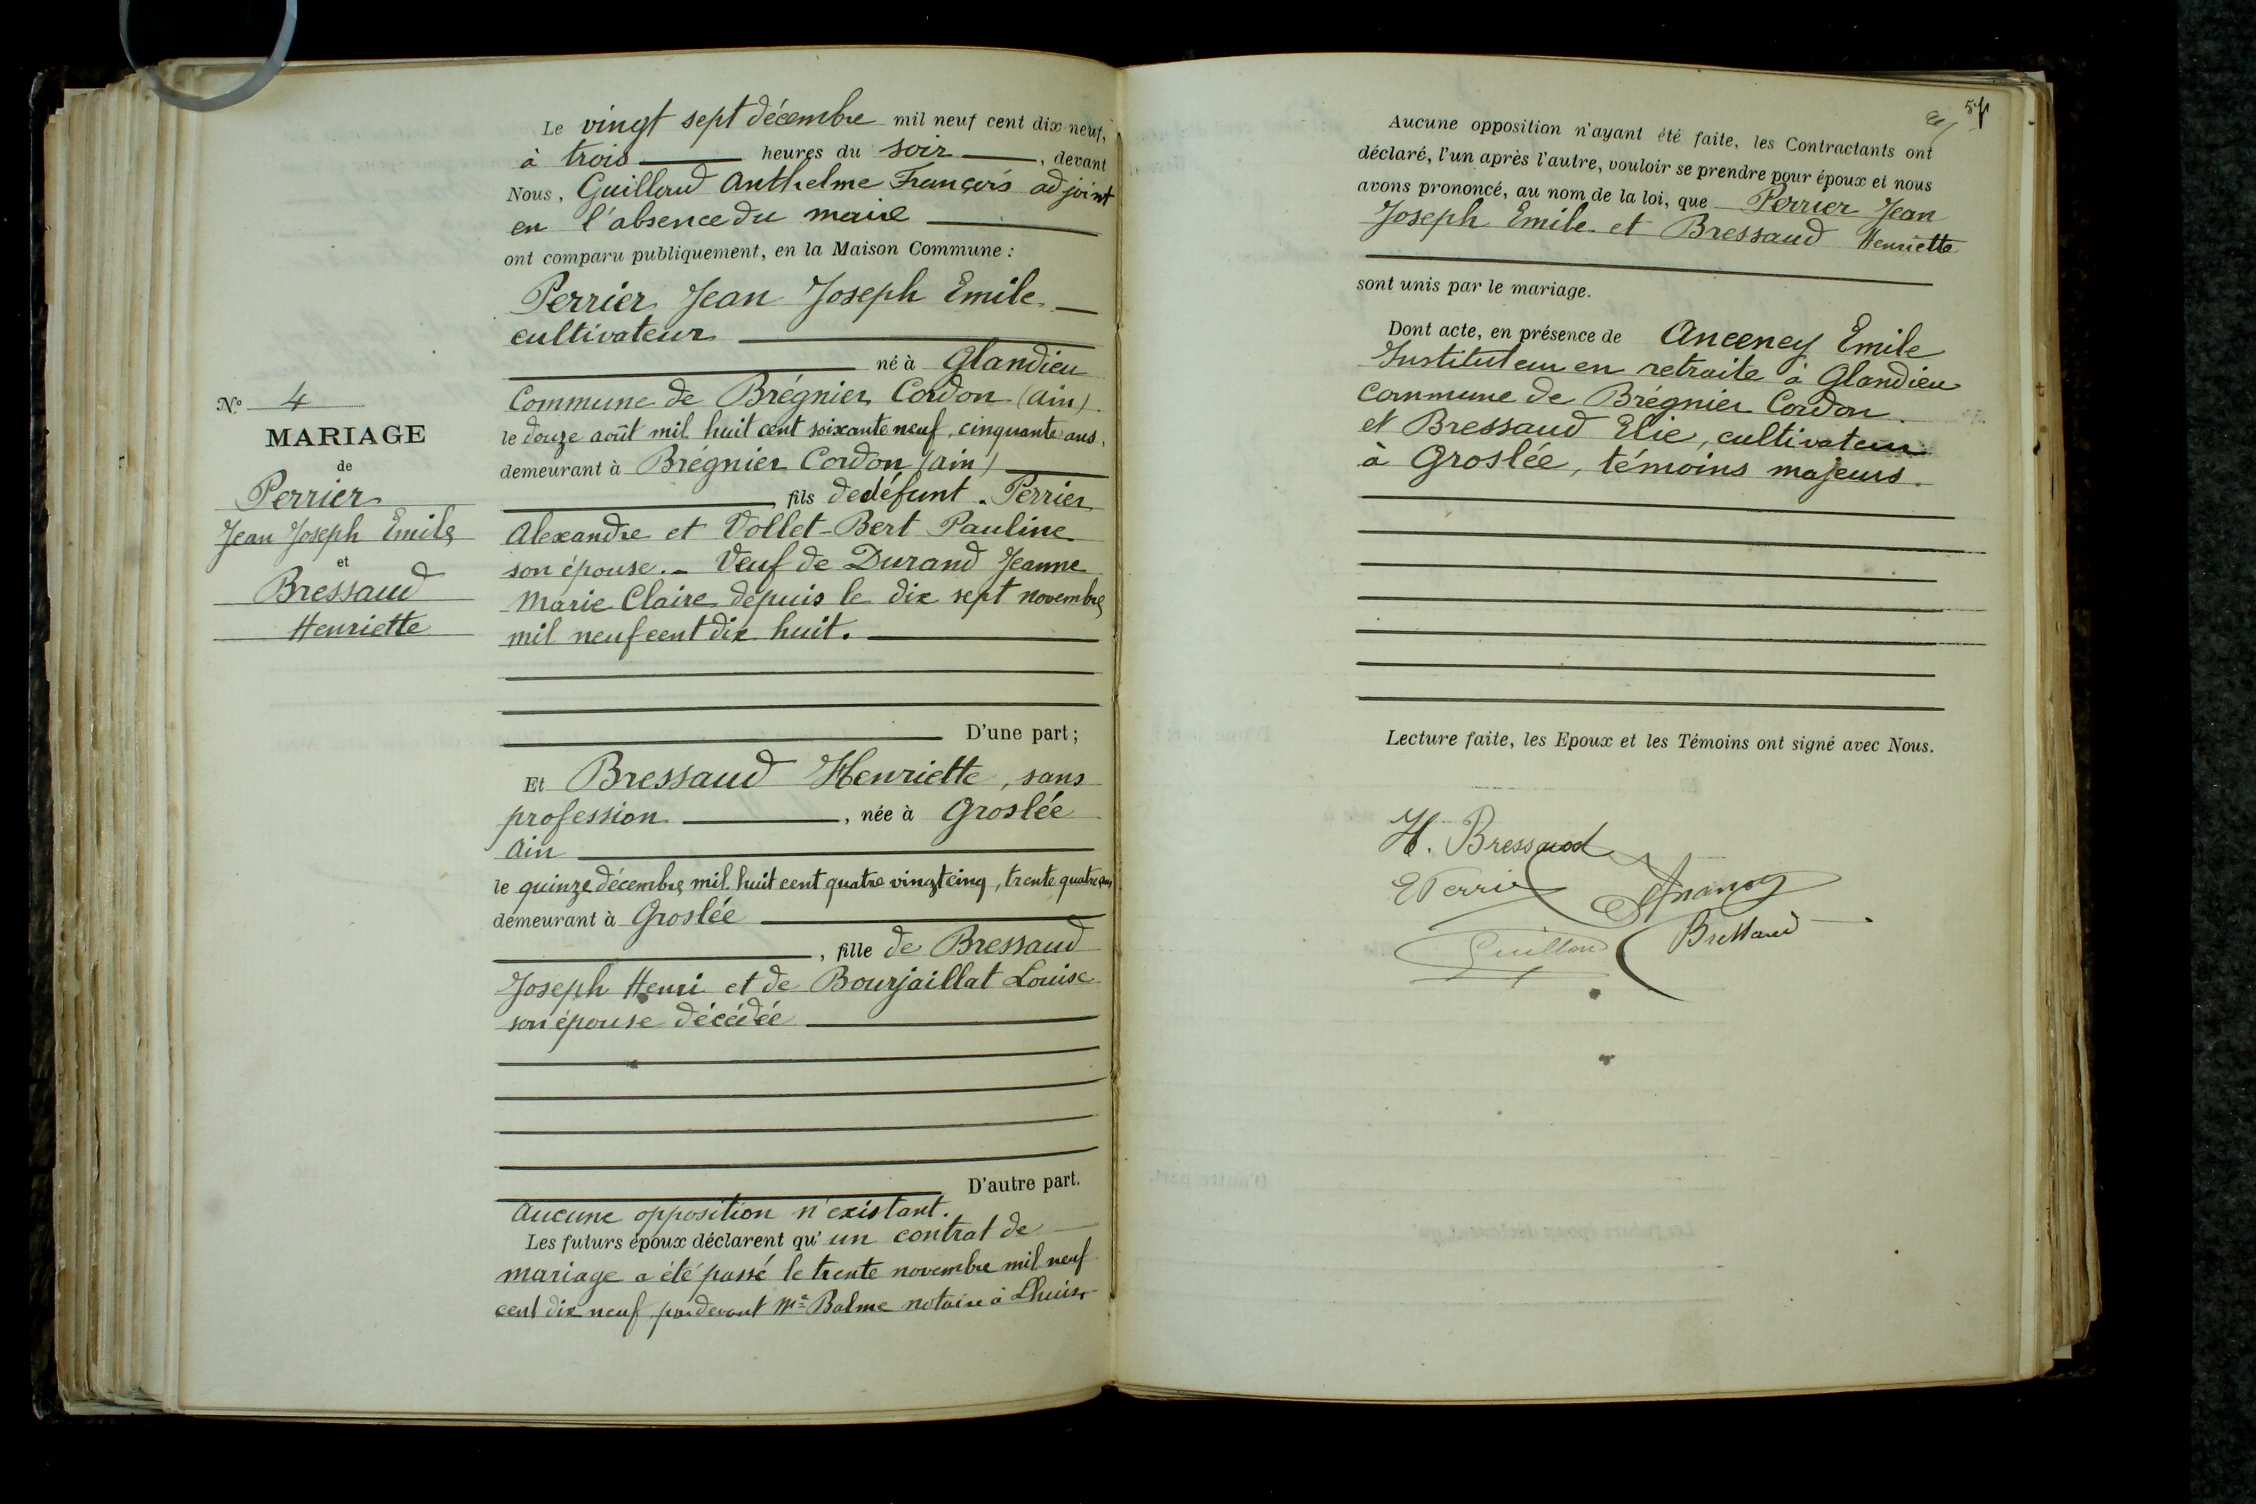 Le vingt sept décembre mil neuf cent dix neuf,
à trois heures du soir, devant
Nous, Guilloud Anthelme François adjoint
en l'absence du maire
ont comparu publiquement, en la Maison Commune :
Perrier Jean Joseph Emile
cultivateur
né à Glandieu
Commune de Brégnier Cordon (Ain)
le douze août mil huit cent soixante neuf, cinquante ans,
demeurant à Brégnier Cordon (Ain)
fils de défunt Perrier
Alexandre et Vollet-Bert Pauline
son épouse. - Veuf de Durand Jeanne
Marie Claire depuis le dix sept novembre
mil neuf cent dix huit.
D'une part ;
Et Bressaud Henriette, sans
profession, née à Groslée
Ain
le quinze décembre mil huit cent quatre vingt cinq, trente quatre ans
demeurant à Groslée
, fille de Bressaud
Joseph Henri et de Bourjaillat Louise
son épouse décédée
D'autre part.
Aucune opposition n'existant.
Les futurs époux déclarent qu'un contrat de
mariage a été passé le trente novembre mil neuf
cent dix neuf par devant Me Balme notaire à Lhuis
N° 4
MARIAGE
de
Perrier
Jean Joseph Emile
et
Bressaud
Henriette
57
Aucune opposition n'ayant été faite, les Contractants ont
déclaré, l'un après l'autre, vouloir se prendre pour époux et nous
avons prononcé, au nom de la loi, que Perrier Jean
Joseph Emile et Bressaud Henriette
sont unis par le mariage.
Dont acte, en présence de Anceney Emile
Instituteur en retraite à Glandieu
commune de Brégnier Cordon
et Bressaud Elie, cultivateur
à Groslée, témoins majeurs.
Lecture faite, les Epoux et les Témoins ont signé avec Nous.
H. Bressaud
E Perrier
Guilloud
Bressaud